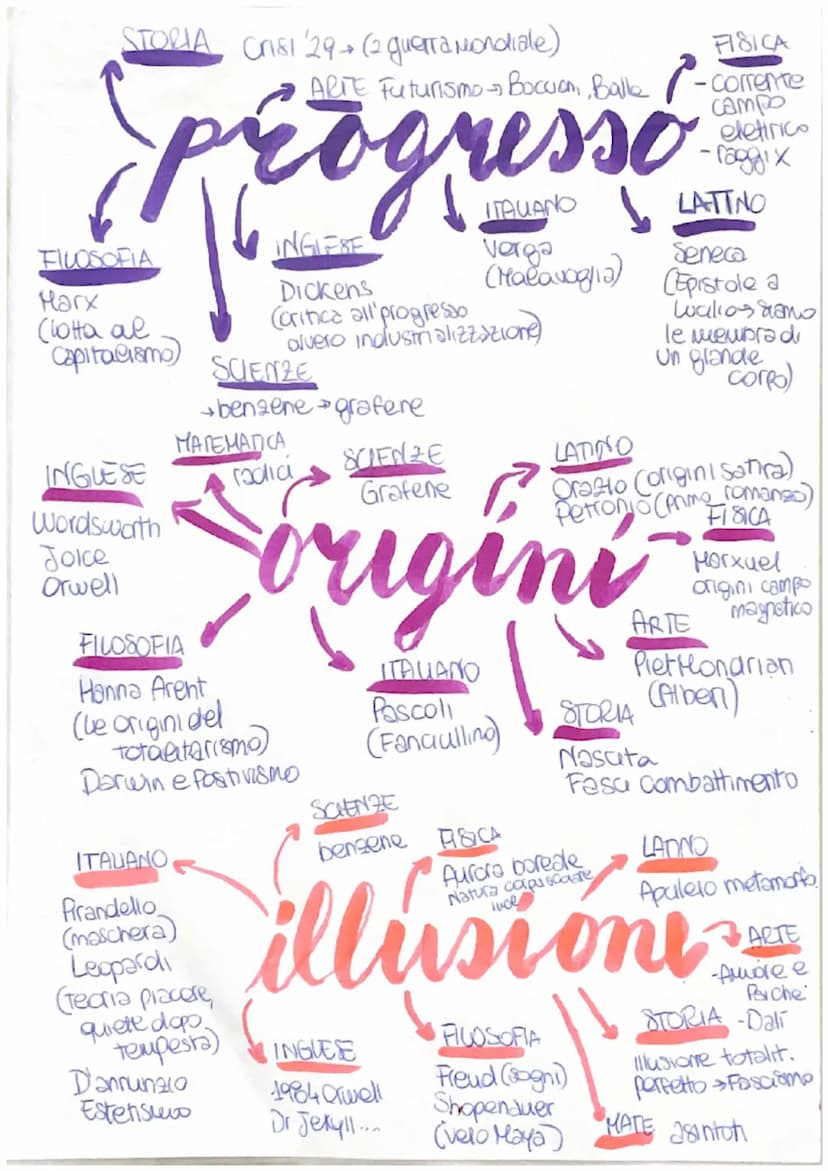 STORIA Crisi '29 → (2 guerra Mondiale)
FISICA
- corrente
campo
elettrico
- raggi X
ARTE Futurismo → Boccioni, Balla
progresso
FILOSOFIA
Marx
(lotta al
capitalismo)
INGLESE
Dickens
(critica all'progresso
ovvero industrializzazione)
ITALIANO
Verga
(Malavoglia)
LATINO
Seneca
(Epistole a
Lucilio → siamo
le membra di
un grande
corpo)
SCIENZE
→ benzene → grafene
INGLESE
Wordsworth
Joice
Orwell
MATEMATICA
radici
SCIENZE
Grafene
LATINO
Orazio (origini satira)
Petronio (primo romanzo)
FISICA
Marxuel
origini campo
magnetico
origini
FILOSOFIA
Hanna Arent
(Le origini del
totalitarismo)
Darwin e Positivismo
ITALIANO
Pascoli
(Fanciullino)
STORIA
Nascita
Fasci Combattimento
ARTE
Piet Mondrian
(Alberi)
ITALIANO
Pirandello
(maschera)
Leopardi
(teoria piacere,
quiete dopo
tempesta)
D'annunzio
Estetismo
SCIENZE
benzene
FISICA
Aurora boreale
Natura corpuscolare
luce
LATINO
Apuleio metamorfo.
illusioni
ARTE
- Amore e
Psiche
- Dalì
INGLESE
1984 Orwell
Dr Jekyll ...
FILOSOFIA
Freud (sogni)
Shopenauer
(velo Maya)
STORIA
Illusione totalit.
perfetto → Fascismo
MATE asintoti